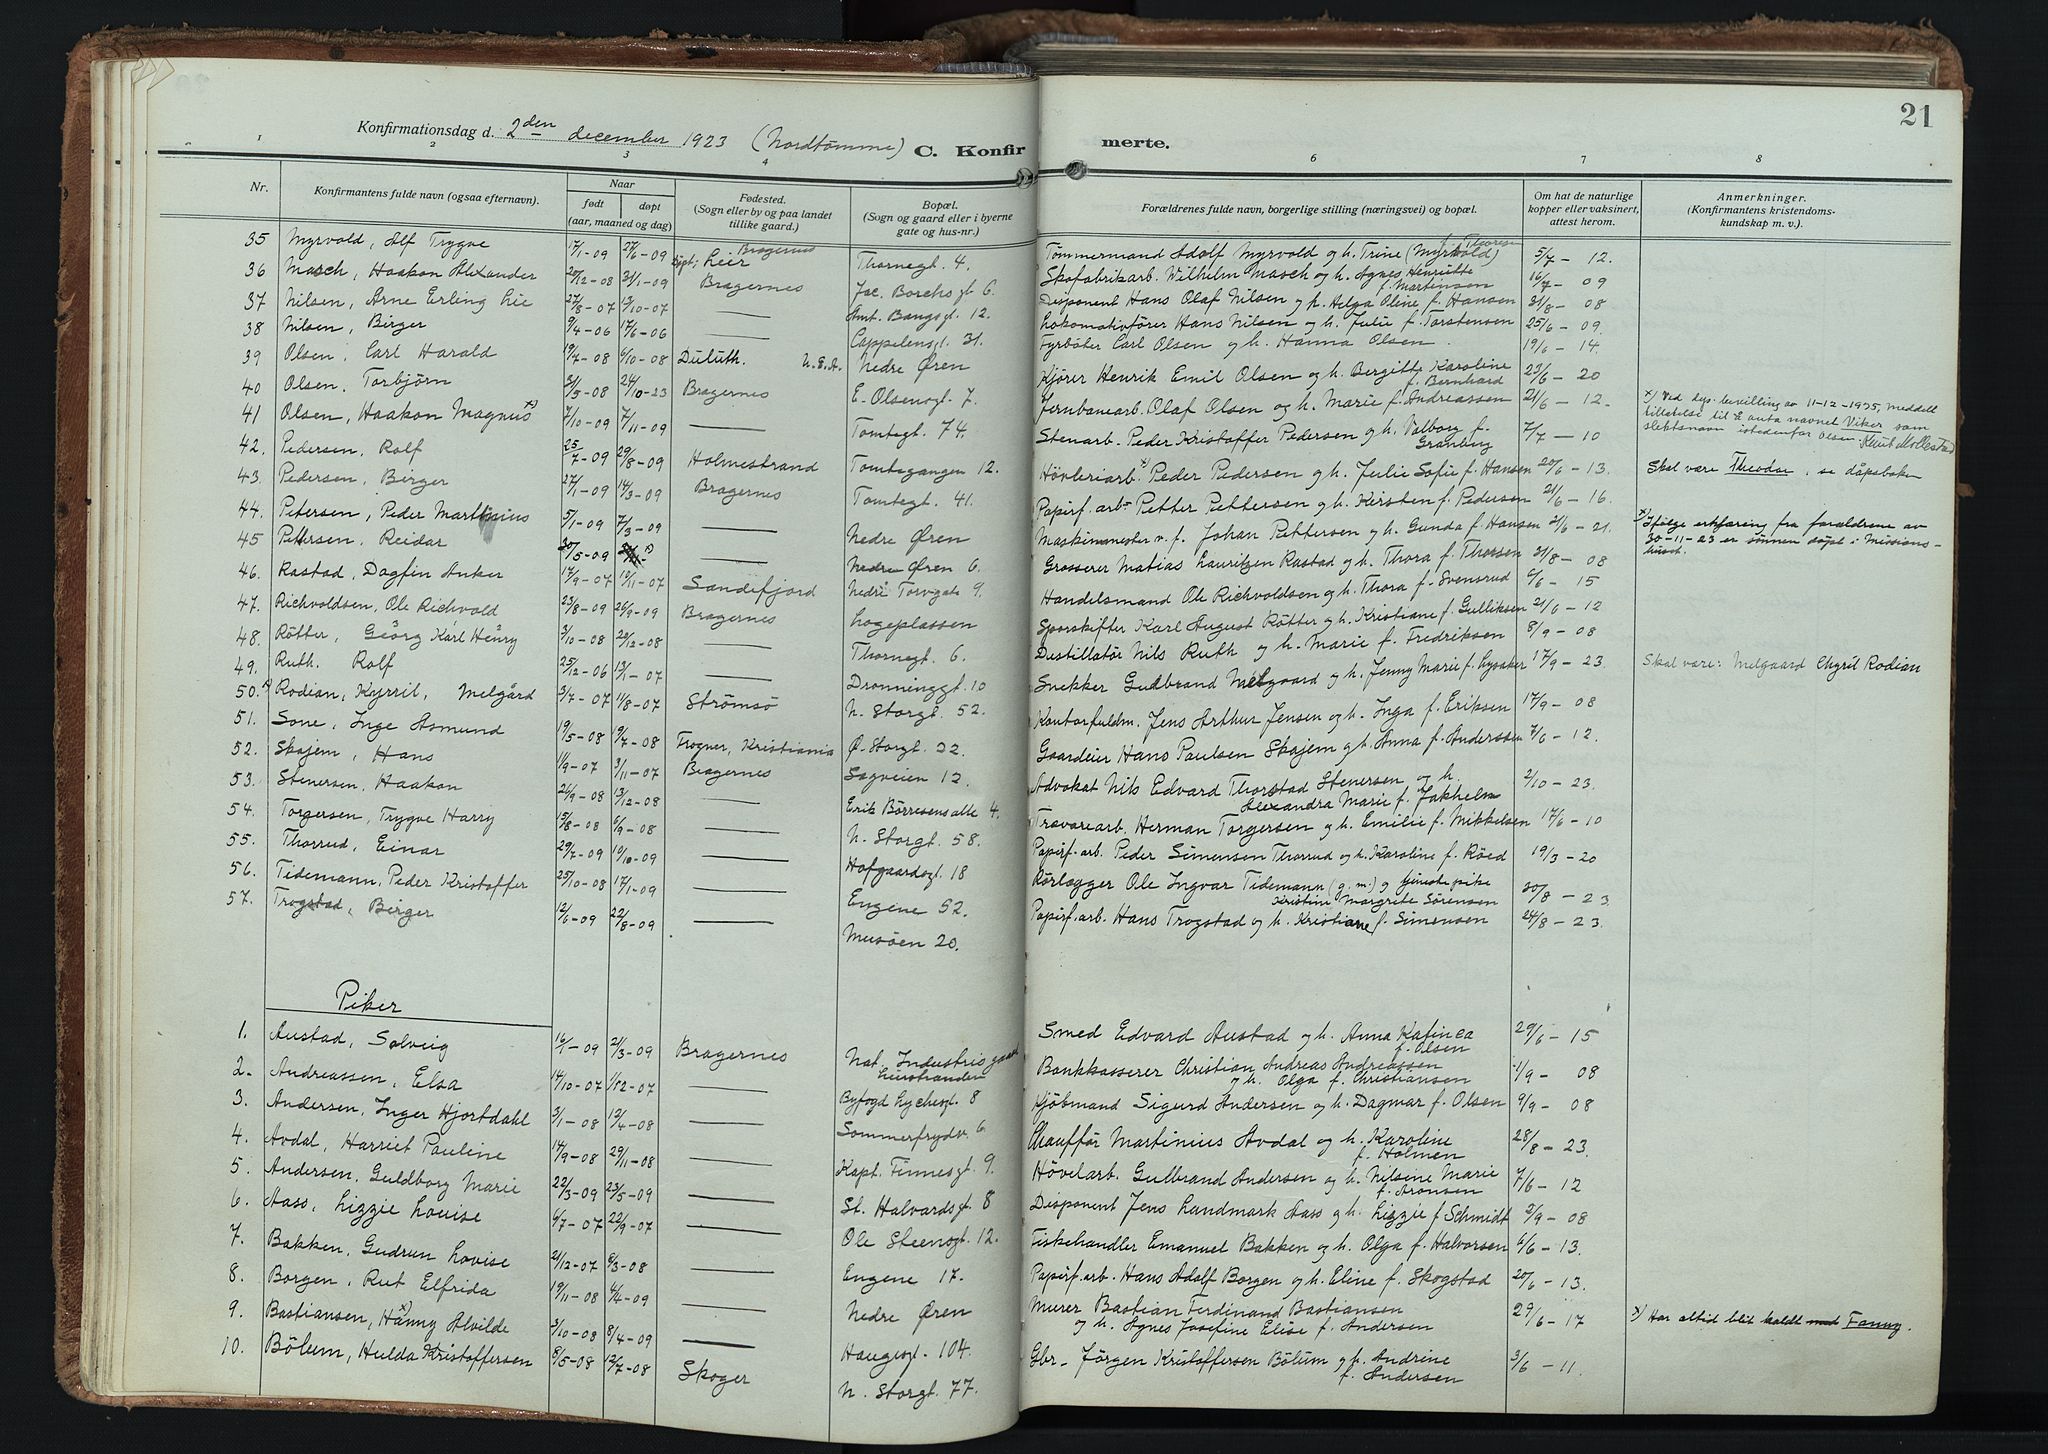 21
Konfirmationsdag d. 2den december 1923 (Nordtømme) C. Konfirmerte.
1 2 3 4 6 7 8
Nr. Konfirmantens fulde navn (ogsaa efternavn). Naar født døpt (aar, maaned og dag) Fødested. (Sogn eller by og paa landet tillike gaard.) Bopæl. (Sogn og gaard eller i byerne gate og hus-nr.) Forældrenes fulde navn, borgerlige stilling (næringsvei) og bopæl. Om hat de naturlige kopper eller vaksinert, attest herom. Anmerkninger. (Konfirmantens kristendomskundskap m. v.).
35 Myrvold, Alf Trygve 17/1-09 27/6-09 Bragernes døpt: Lier Thornegt. 4. Tømmermand Adolf Myrvold og h. Trine (Myrvold) f. Thoresen 5/7-12.
36 Masch, Haakon Alexander 20/12-08 31/1-09 Bragernes Jac. Borchsgt. 6. Skofabrikarb. Wilhelm Masch og h. Agnes Henriette f. Martinsen 16/7-09
37 Nilsen, Arne Erling Lie 27/8-07 13/10-07 — Amt. Bangsgt. 12. Disponent Hans Olaf Nilsen og h. Helga Oline f. Hansen 31/8-08
38 Nilsen, Birger 9/4-06 17/6-06 — Cappelensgt. 31. Lokomotivfører Hans Nilsen og h. Julie f. Torstensen 25/6-09.
39 Olsen, Carl Harald 19/7-08 6/10-08 Duluth. U.S.A. Nedre Øren Fyrbøter Carl Olsen og h. Hanna Olsen. 19/6-14.
40 Olsen, Torbjörn 31/5-08 24/10-23 Bragernes E. Olsensgt. 7. Kjører Henrik Emil Olsen og h. Bergitte Karoline f. Bernhard 23/6-20
41 Olsen, Haakon Magnus x) 7/10-09 7/11-09 — Tomtegt. 74. Jernbanearb. Olaf Olsen og h. Marie f. Andreassen 21/6-12. x) Ved dep. bevilling av 11-12-1935, meddelt tillatelse til å anta navnet Viker som slektsnavn istedenfor Olsen. Knut Mollestad
42. Pedersen, Rolf 25/7-09 29/8-09 Holmestrand Tomtegangen 12. Stenarb. Peder Kristoffer Pedersen og h. Valborg f. Granberg 7/7-10
43. Pedersen, Birger 27/1-09 14/3-09 Bragernes Tomtegt. 41. Høvleriarb. x) Peder Pedersen og h. Julie Sofie f. Hansen 20/6-13. Skal være Theodor, se dåpsboken
44. Petersen, Peder Martinius 5/1-09 7/3-09 — Nedre Øren Papirf. arb. Petter Pettersen og h. Kirsten f. Pedersen 21/6-16.
45 Pettersen, Reidar 30/5-09 x) — Nedre Øren 6. Maskinmester v. f. Johan Pettersen og h. Gunda f. Hansen 21/6-21. x) Ifølge erklæring fra forældrene av 30-11-23 er sønnen døpt i Missionshuset.
46. Rastad, Dagfin Anker 17/9-07 10/11-07 Sandefjord Nedre Torvgate 9. Grosserer Matias Lauritzen Rastad og h. Thora f. Thorsen 31/8-08
47. Richvoldsen, Ole Richvold 23/8-09 26/9-09 Bragernes Logeplassen Handelsmand Ole Richvoldsen og h. Thora f. Svensrud 6/6-15
48. Rötter, Georg Karl Henry 3/10-08 20/12-08 — Thornegt. 6. Sporskifter Karl August Rötter og h. Kristiane f. Gulliksen 21/6-12
49. Ruth. Rolf 25/12-06 13/1-07 — Dronninggt. 10 Destillatør Nils Ruth og h. Marie f. Fredriksen 8/9-08
50. x) Rodian, Kyrril, Melgård 3/7-07 11/8-07 Strømsø N. Storgt. 52. Snekker Gudbrand Melgaard og h. Jenny Marie f. Lysaker 17/9-23. Skal være: Melgaard Chyril Rodian
51. Sone, Inge Asmund 19/5-08 19/7-08 Frogner, Kristiania Ø. Storgt. 22. Kontorfuldm. Jens Arthur Jensen og h. Inga f. Eriksen 17/9-08
52. Skajem, Hans 1/9-07 3/11-07 Bragernes Sagveien 12. Gaardeier Hans Paulsen Skajem og h. Anna f. Anderssen 7/6-12.
53. Stenersen, Haakon 26/9-08 13/12-08 — Erik Børresens alle 4. Advokat Nils Edvard Thorstad Stenersen og h. Alexandra Marie f. Jakhelm 2/10-23.
54. Torgersen, Trygve Harry 15/8-08 6/9-08 — N. Storgt. 58. Trævarearb. Herman Torgersen og h. Emilie f. Mikkelsen 17/6-10
55. Thorrud, Einar 29/7-09 10/10-09 — Hofgaardsgt. 18 Papirf. arb. Peder Simensen Thorrud og h. Karoline f. Röed 19/3-20
56. Tidemann, Peder Kristoffer 25/10-08 17/1-09 — Engene 52. Rørlægger Ole Ingvar Tidemann (g. m.) og tjenestepike Kristine Margrite Sörensen 30/8-23
57. Trogstad, Birger 12/6-09 22/8-09 — Musöen 20. Papirf. arb. Hans Trogstad og h. Kristiane f. Simensen 24/8-23.
Piker
1. Austad, Solveig 16/1-09 21/3-09 Bragernes Nat. Industris gaard Lierstranden Smed Edvard Austad og h. Anna Katinca f. Olsen 29/6-15
2. Andreassen, Elsa 14/10-07 1/12-07 — Byfogd Lychesgt. 8 Bankkasserer Christian Andreas Andreassen og h. Olga f. Christiansen 1/9-08
3. Andersen, Inger Hjortdahl 3/1-08 12/4-08 — Sommerfrydv. 6 Kjøbmand Sigurd Andersen og h. Dagmar f. Olsen 9/9-08
4. Avdal, Harriet Pauline 14/9-08 29/11-08 — Kapt. Finnesgt. 9. Chauffør Martinius Avdal og h. Karoline f. Holmen 28/8-23.
5. Andersen, Guldborg Marie 22/3-09 23/5-09 — St. Halvardsgt. 8 Høvelarb. Gulbrand Andersen og h. Nilsine Marie f. Aronsen 7/6-12
6. Aass, Lizzie Louise 6/7-07 22/9-07 — Ole Steensgt. 12. Disponent Jens Landmark Aass og h. Lizzie f. Schmidt 2/9-08
7. Bakken, Gudrun Lovise 21/12-07 8/3-08 — Engene 17. Fiskehandler Emanuel Bakken og h. Olga f. Halvorsen 6/6-13.
8. Borgen, Rut Elfrida 19/11-08 4/4-09 — Nedre Øren Papirf. arb. Hans Adolf Borgen og h. Eline f. Skogstad 20/6-13.
9. Bastiansen, Hanny x) Alvilde 3/10-08 8/4-09 — Haugesgt. 104. Murer Bastian Ferdinand Bastiansen og h. Agnes Josefine Elise f. Andersen 29/6-17 x) Har altid blit kaldt med Fanny.
10. Bölum, Hulda Kristoffersen 8/5-08 12/7-08 Skoger N. Storgt. 77. Gbr. Jörgen Kristoffersen Bölum og h. Andrine f. Andersen 3/6-11.